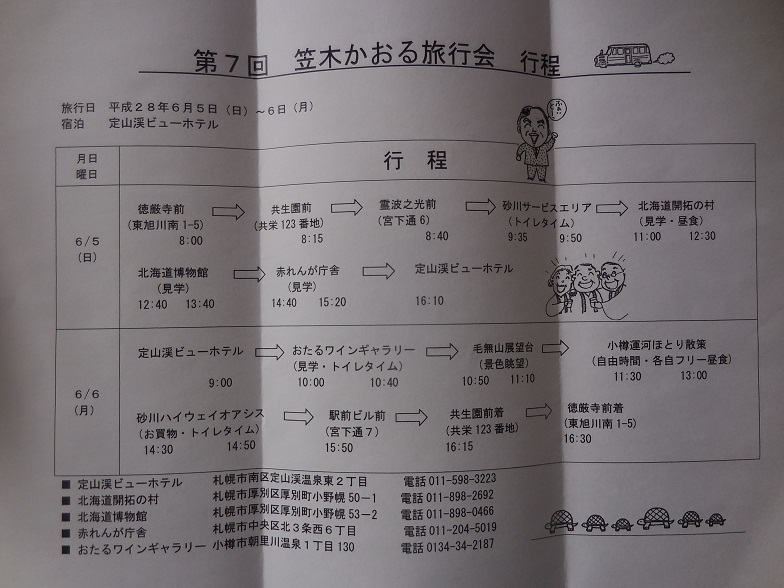 第７回 笠木かおる旅行会 行程
旅行日 平成２８年６月５日（日）～６日（月）
宿泊 定山渓ビューホテル
月日 曜日 行程
6/5 （日）
徳厳寺前 ⇒ 共生園前 ⇒ 霊波之光前 ⇒ 砂川サービスエリア ⇒ 北海道開拓の村
（東旭川南1-5） （共栄123番地） （宮下通6） （トイレタイム） （見学・昼食）
8:00 8:15 8:40 9:35 9:50 11:00 12:30
北海道博物館 ⇒ 赤れんが庁舎 ⇒ 定山渓ビューホテル
（見学） （見学）
12:40 13:40 14:40 15:20 16:10
6/6 （月）
定山渓ビューホテル ⇒ おたるワインギャラリー ⇒ 毛無山展望台 ⇒ 小樽運河ほとり散策
（見学・トイレタイム） （景色眺望） （自由時間・各自フリー昼食）
9:00 10:00 10:40 10:50 11:10 11:30 13:00
砂川ハイウェイオアシス ⇒ 駅前ビル前 ⇒ 共生園前着 ⇒ 徳厳寺前着
（お買物・トイレタイム） （宮下通７） （共栄123番地） （東旭川南1-5）
14:30 14:50 15:50 16:15 16:30
■ 定山渓ビューホテル 札幌市南区定山渓温泉東２丁目 電話011-598-3223
■ 北海道開拓の村 札幌市厚別区厚別町小野幌50－1 電話011-898-2692
■ 北海道博物館 札幌市厚別区厚別町小野幌53－2 電話011-898-0466
■ 赤れんが庁舎 札幌市中央区北３条西６丁目 電話011-204-5019
■ おたるワインギャラリー 小樽市朝里川温泉１丁目130 電話0134-34-2187